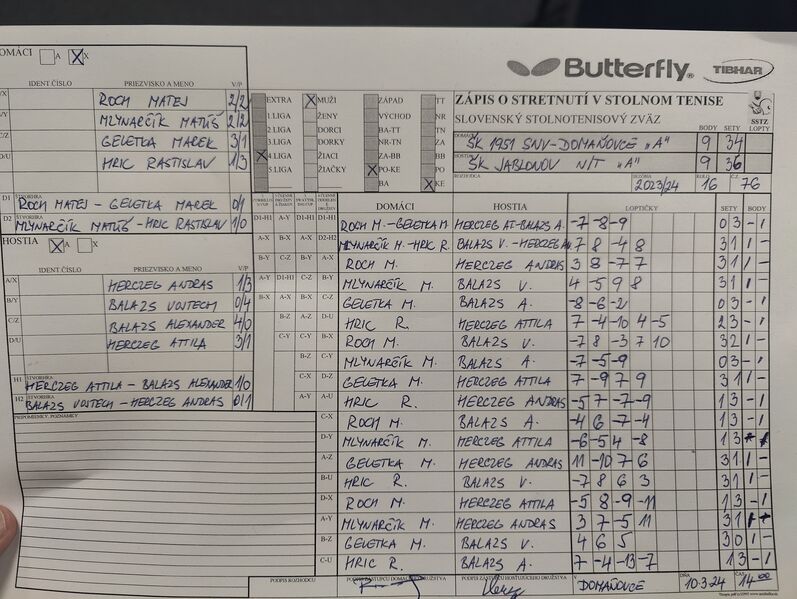 DOMÁCI A X X
IDENT.ČÍSLO PRIEZVISKO A MENO V/P
A/X ROCH MATEJ 2/2
B/Y MLYNARČÍK MATÚŠ 2/2
C/Z GELETKA MAREK 3/1
D/U HRIC RASTISLAV 1/3
D1 ŠTVORHRA ROCH MATEJ - GELETKA MAREK 0/1
D2 MLYNARČÍK MATÚŠ - HRIC RASTISLAV 1/0
HOSTIA X A X
IDENT.ČÍSLO PRIEZVISKO A MENO V/P
A/X HERCZEG ANDRAS 1/3
B/Y BALAZS VOJTECH 0/4
C/Z BALAZS ALEXANDER 4/0
D/U HERCZEG ATTILA 3/1
H1 ŠTVORHRA HERCZEG ATTILA - BALAZS ALEXANDER 1/0
H2 ŠTVORHRA BALAZS VOJTECH - HERCZEG ANDRAS 0/1
PRIPOMIENKY, POZNÁMKY
Butterfly TIBHAR
EXTRA X MUŽI ZÁPAD TT
1.LIGA ŽENY VÝCHOD NR
DORCI BA-TT TN
DORKY NR-TN ZA
X 4.LIGA ŽIACI ZA-BB BB
5.LIGA ŽIAČKY X PO-KE PO
BA X KE
ZÁPIS O STRETNUTÍ V STOLNOM TENISE
SLOVENSKÝ STOLNOTENISOVÝ ZVÄZ SSTZ
BODY SETY LOPTY
DOMÁCI ŠK 1951 SNV-DOMAŇOVCE „A" 9 34
HOSTIA ŠK JABLONOV N/T „A" 9 36
ROZHODCA SEZÓNA 2023/24 KOLO 16 Č.Z. 76
DOMÁCI HOSTIA LOPTIČKY SETY BODY
D1-H1 A-Y D1-H1 D1-H1 ROCH M.-GELETKA M. HERCZEG AT-BALAZS A. -7 -8 -9 0 3 - 1
A-X B-X A-X D2-H2 MLYNARČÍK M.-HRIC R. BALAZS V.-HERCZEG AN 7 8 -4 8 3 1 1 -
B-Y C-Z B-Y A-X ROCH M. HERCZEG ANDRAS 3 8 -7 7 3 1 1 -
C-Z D1-H1 C-Z B-Y MLYNARČÍK M. BALAZS V. 4 -5 9 8 3 1 1 -
B-X A-X B-X C-Z GELETKA M. BALAZS A. -8 -6 -2 0 3 - 1
B-Z A-Z D-U HRIC R. HERCZEG ATTILA 7 -4 -10 4 -5 2 3 - 1
C-Y C-Y B-X ROCH M. BALAZS V. -7 8 -3 7 10 3 2 1 -
B-Z C-Y MLYNARČÍK M. BALAZS A. -7 -5 -9 0 3 - 1
C-X D-Z GELETKA M. HERCZEG ATTILA 7 -9 7 9 3 1 1 -
A-Y A-U HRIC R. HERCZEG ANDRAS -5 7 -7 -9 1 3 - 1
C-X ROCH M. BALAZS A. -4 6 -7 -4 1 3 - 1
D-Y MLYNARČÍK M. HERCZEG ATTILA -6 -5 4 -8 1 3
A-Z GELETKA M. HERCZEG ANDRAS 11 -10 7 6 3 1 1 -
B-U HRIC R. BALAZS V. -7 8 6 3 3 1 1 -
D-X ROCH M. HERCZEG ATTILA -5 8 -9 -11 1 3 - 1
A-Y MLYNARČÍK M. HERCZEG ANDRAS 3 7 -5 11 3 1
B-Z GELETKA M. BALAZS V. 4 6 5 3 0 1 -
C-U HRIC R. BALAZS A. 7 -4 -13 -7 1 3 - 1
PODPIS ROZHODCU PODPIS ZÁSTUPCU DOMÁCEHO DRUŽSTVA PODPIS ZÁSTUPCU HOSŤUJÚCEHO DRUŽSTVA V DOMAŇOVCE DŇA 10.3.24 ČAS 14 00